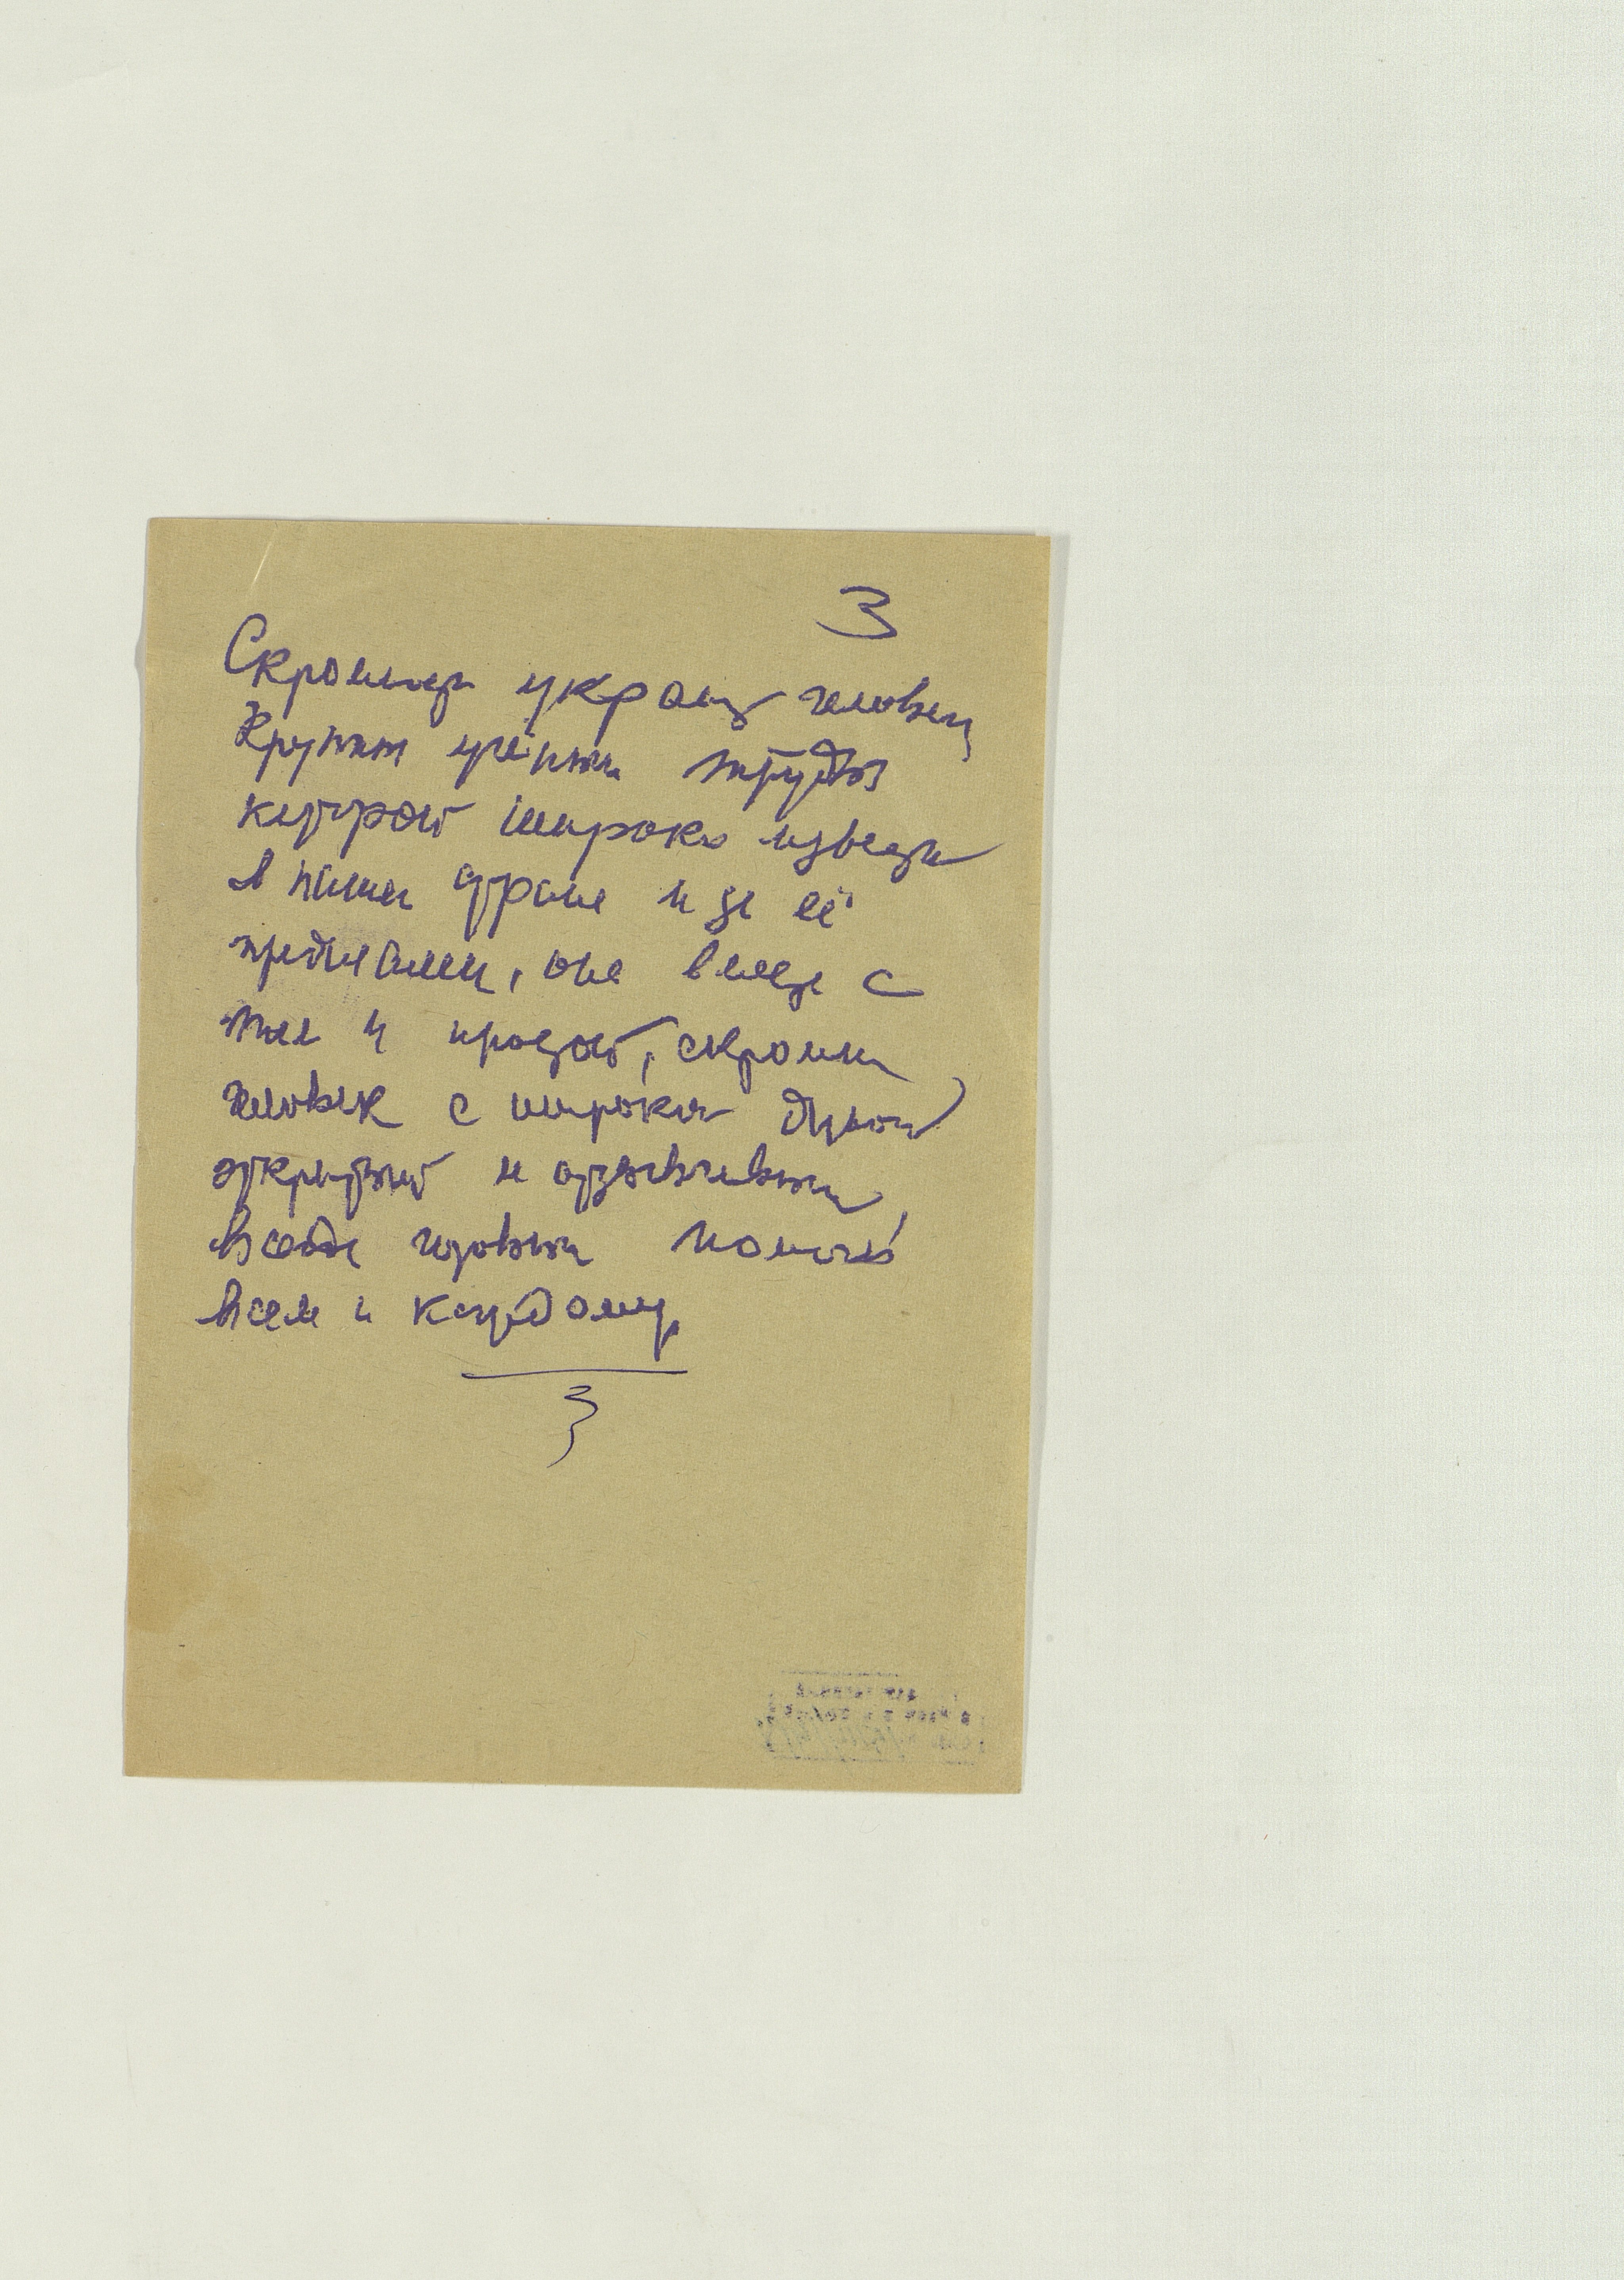 3
Скромность украшает человека
Крупный учёный труды
которой широко известны
в нашей стране и за её
пределами, она вместе с
тем и простой, скромный
человек с широкой душой
открытый и отзывчивый,
всегда готовый помочь
всем и каждому,